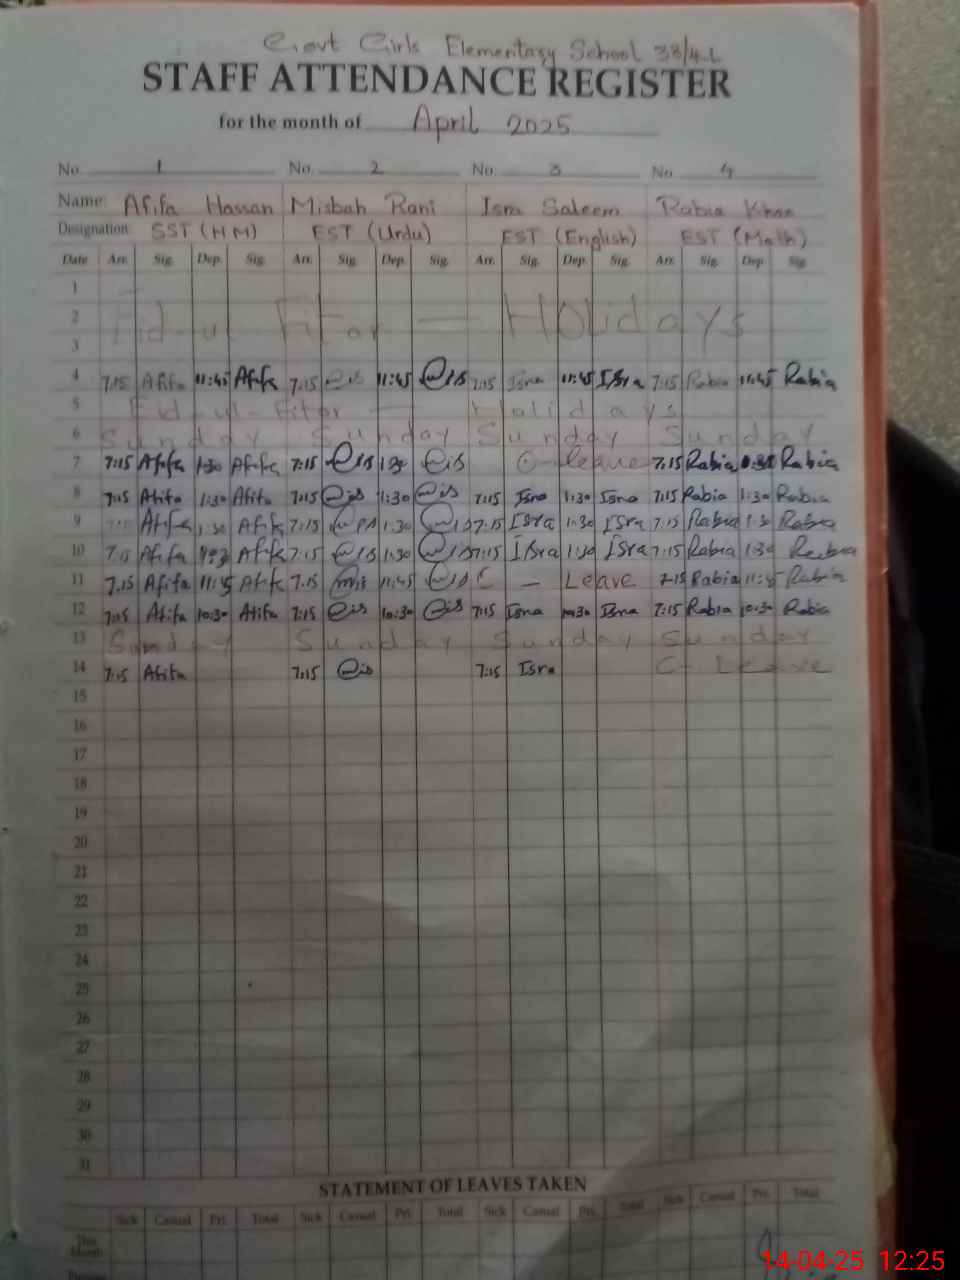 Govt Girls Elementary School 38/4-L
STAFF ATTENDANCE REGISTER
for the month of April 2025
No. 1 No. 2 No. 3 No. 4
Name: Afifa Hassan Misbah Rani Isra Saleem Rabia Khan
Designation SST (HM) EST (Urdu) EST (English) EST (Math)
Date Arr. Sig. Dep. Sig. Arr. Sig. Dep. Sig. Arr. Sig. Dep. Sig. Arr. Sig. Dep. Sig.
1
2 Eid-ul Fitar — Holidays
3
4 7:15 Afifa 11:45 Afifa 7:15 11:45 7:15 Isra 11:45 Isra 7:15 Rabia 11:45 Rabia
5 Eid-ul-Fitar — Holidays
6 Sunday Sunday Sunday Sunday
7 7:15 Afifa 1:30 Afifa 7:15 1:30 C-leave 7:15 Rabia Rabia
8 7:15 Afifa 1:30 Afifa 7:15 1:30 7:15 Isra 1:30 Isra 7:15 Rabia 1:30 Rabia
9 Afifa 1:30 Afifa 7:15 1:30 7:15 Isra 1:30 Isra 7:15 Rabia 1:30 Rabia
10 7:15 Afifa Afifa 7:15 1:30 7:15 Isra 1:30 Isra 7:15 Rabia 1:30 Rabia
11 7:15 Afifa 11:45 Afifa 7:15 11:45 C — Leave 7:15 Rabia 11:45 Rabia
12 7:15 Afifa 10:30 Afifa 7:15 10:30 7:15 Isra 10:30 Isra 7:15 Rabia 10:30 Rabia
13 Sunday Sunday Sunday Sunday
14 7:15 Afifa 7:15 7:15 Isra C- Leave
15
16
17
18
19
20
21
22
23
24
25
26
27
28
29
30
31
STATEMENT OF LEAVES TAKEN
Sick Casual Pri. Total Sick Casual Pri. Total Sick Casual Pri. Total Sick Casual Pri. Total
This Month
14-04-25 12:25